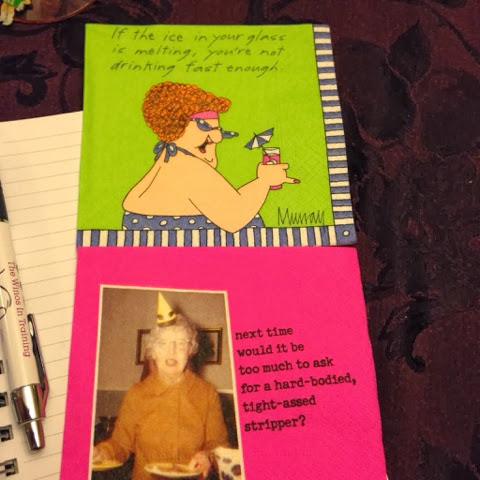 If the ice in your glass
is melting, you're not
drinking fast enough.
Murray
next time
would it be
too much to ask
for a hard-bodied,
tight-assed
stripper?
The Winos In Training